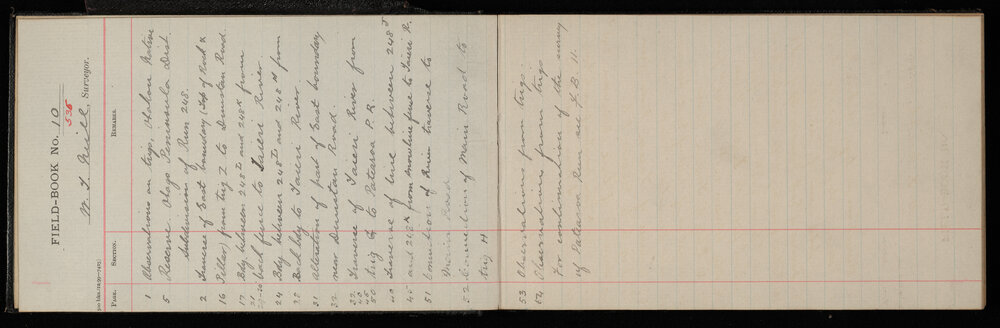 FIELD-BOOK No. 10
535
W. T. Neill, Surveyor.
Page. Section. Remarks.
1 Observations on trigs, Otakou Native
5 Reserve. Otago Peninsula Dist.
Subdivision of Run 248.
2 Traverse of East boundary (Top of Rock &
16 Pillar) from trig Z to Dunstan Road.
17 Bdy. between 248 and 248 from
21 back fence to Taieri River.
24 Bdg between 248 and 248 from
25 Back bdy to Taieri River
31 Alteration of part of East boundary
32 near Dunstan Road.
Traverse of Taieri River from
50 trig G to Patearoa P.R.
40 Traverse of line between 248
45 and 213 from snowline fence to Taieri R.
51 Connection of River traverse to
Main Road
52 Connection of Main Road to
trig H
53 Observations from trigs.
54 Observations from trigs
For continuation of the survey
of Patearoa Run see F.B. 11.